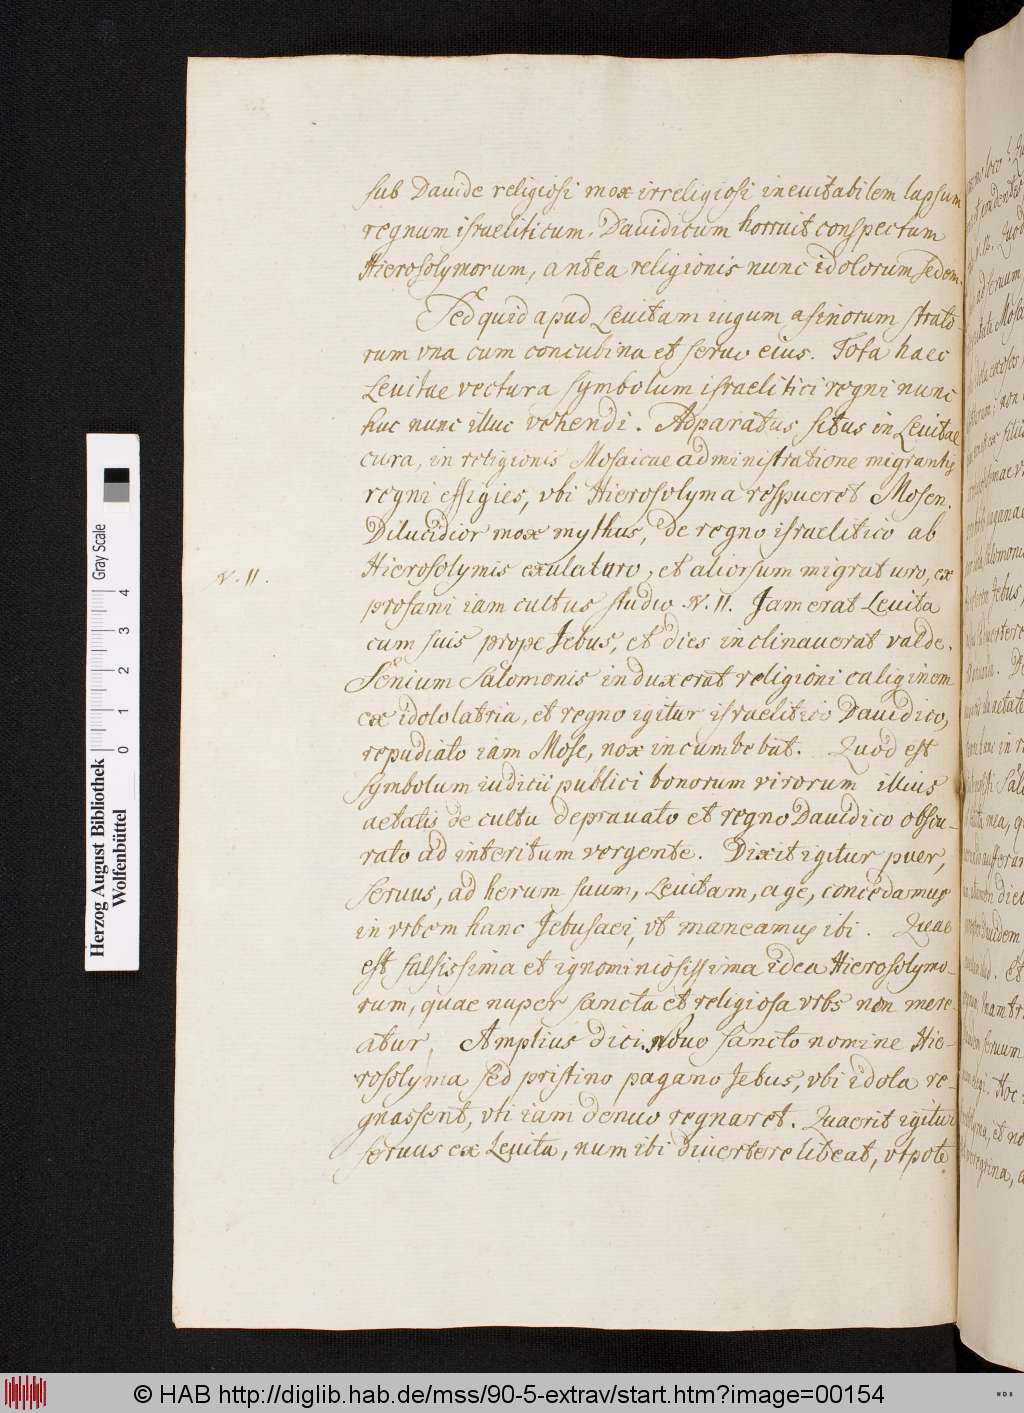 sub Dauide religiosi mox irreligiosi ineuitabilem lapsum
regnum israeliticum. Dauidicum horruit conspectum
Hierosolymorum, antea religionis nunc idolorum sedem.
Sed quid apud Leuitam iugum asinorum strato
rum vna cum concubina et seruo eius. Tota haec
Leuitae vectura symbolum israelitici regni nunc
huc nunc illuc vehendi. Apparatus situs in Leuitae
cura, in religionis Mosaicae administratione migrantis
regni effigies, vbi Hierosolyma respueret Mosen.
Dilucidior mox mythus, de regno israelitico ab
Hierosolymis exulaturo, et aliorsum migraturo, ex
N. 11.
profani iam cultus studio N. 11. Jam erat Leuita
cum suis prope Jebus, et dies inclinauerat valde.
Senium Salomonis induxerat religioni caliginem
ex idololatria, et regno igitur israelitico Dauidico,
repudiato iam Mose, nox incumbebat. Quod est
symbolum iudicii publici bonorum virorum illius
aetatis de cultu deprauato et regno Dauidico obscu-
rato ad interitum vergente. Dixit igitur puer,
seruus, ad herum suum, Leuitam, age, concedamus
in vrbem hanc Jebusaei, vt maneamus ibi. Quae
est falsissima et ignominiosissima idea Hierosolymo-
rum, quae nuper sancta et religiosa vrbs non mere-
atur, Amplius dici nouo sancto nomine Hie-
rosolyma sed pristino pagano Jebus, vbi idola re-
gnassent, vti iam denuo regnaret. Quaerit igitur
seruus ex Leuita, num ibi diuertere libeat, vtpote
Herzog August Bibliothek
Wolfenbüttel
Gray Scale
0 1 2 3 4
© HAB http://diglib.hab.de/mss/90-5-extrav/start.htm?image=00154